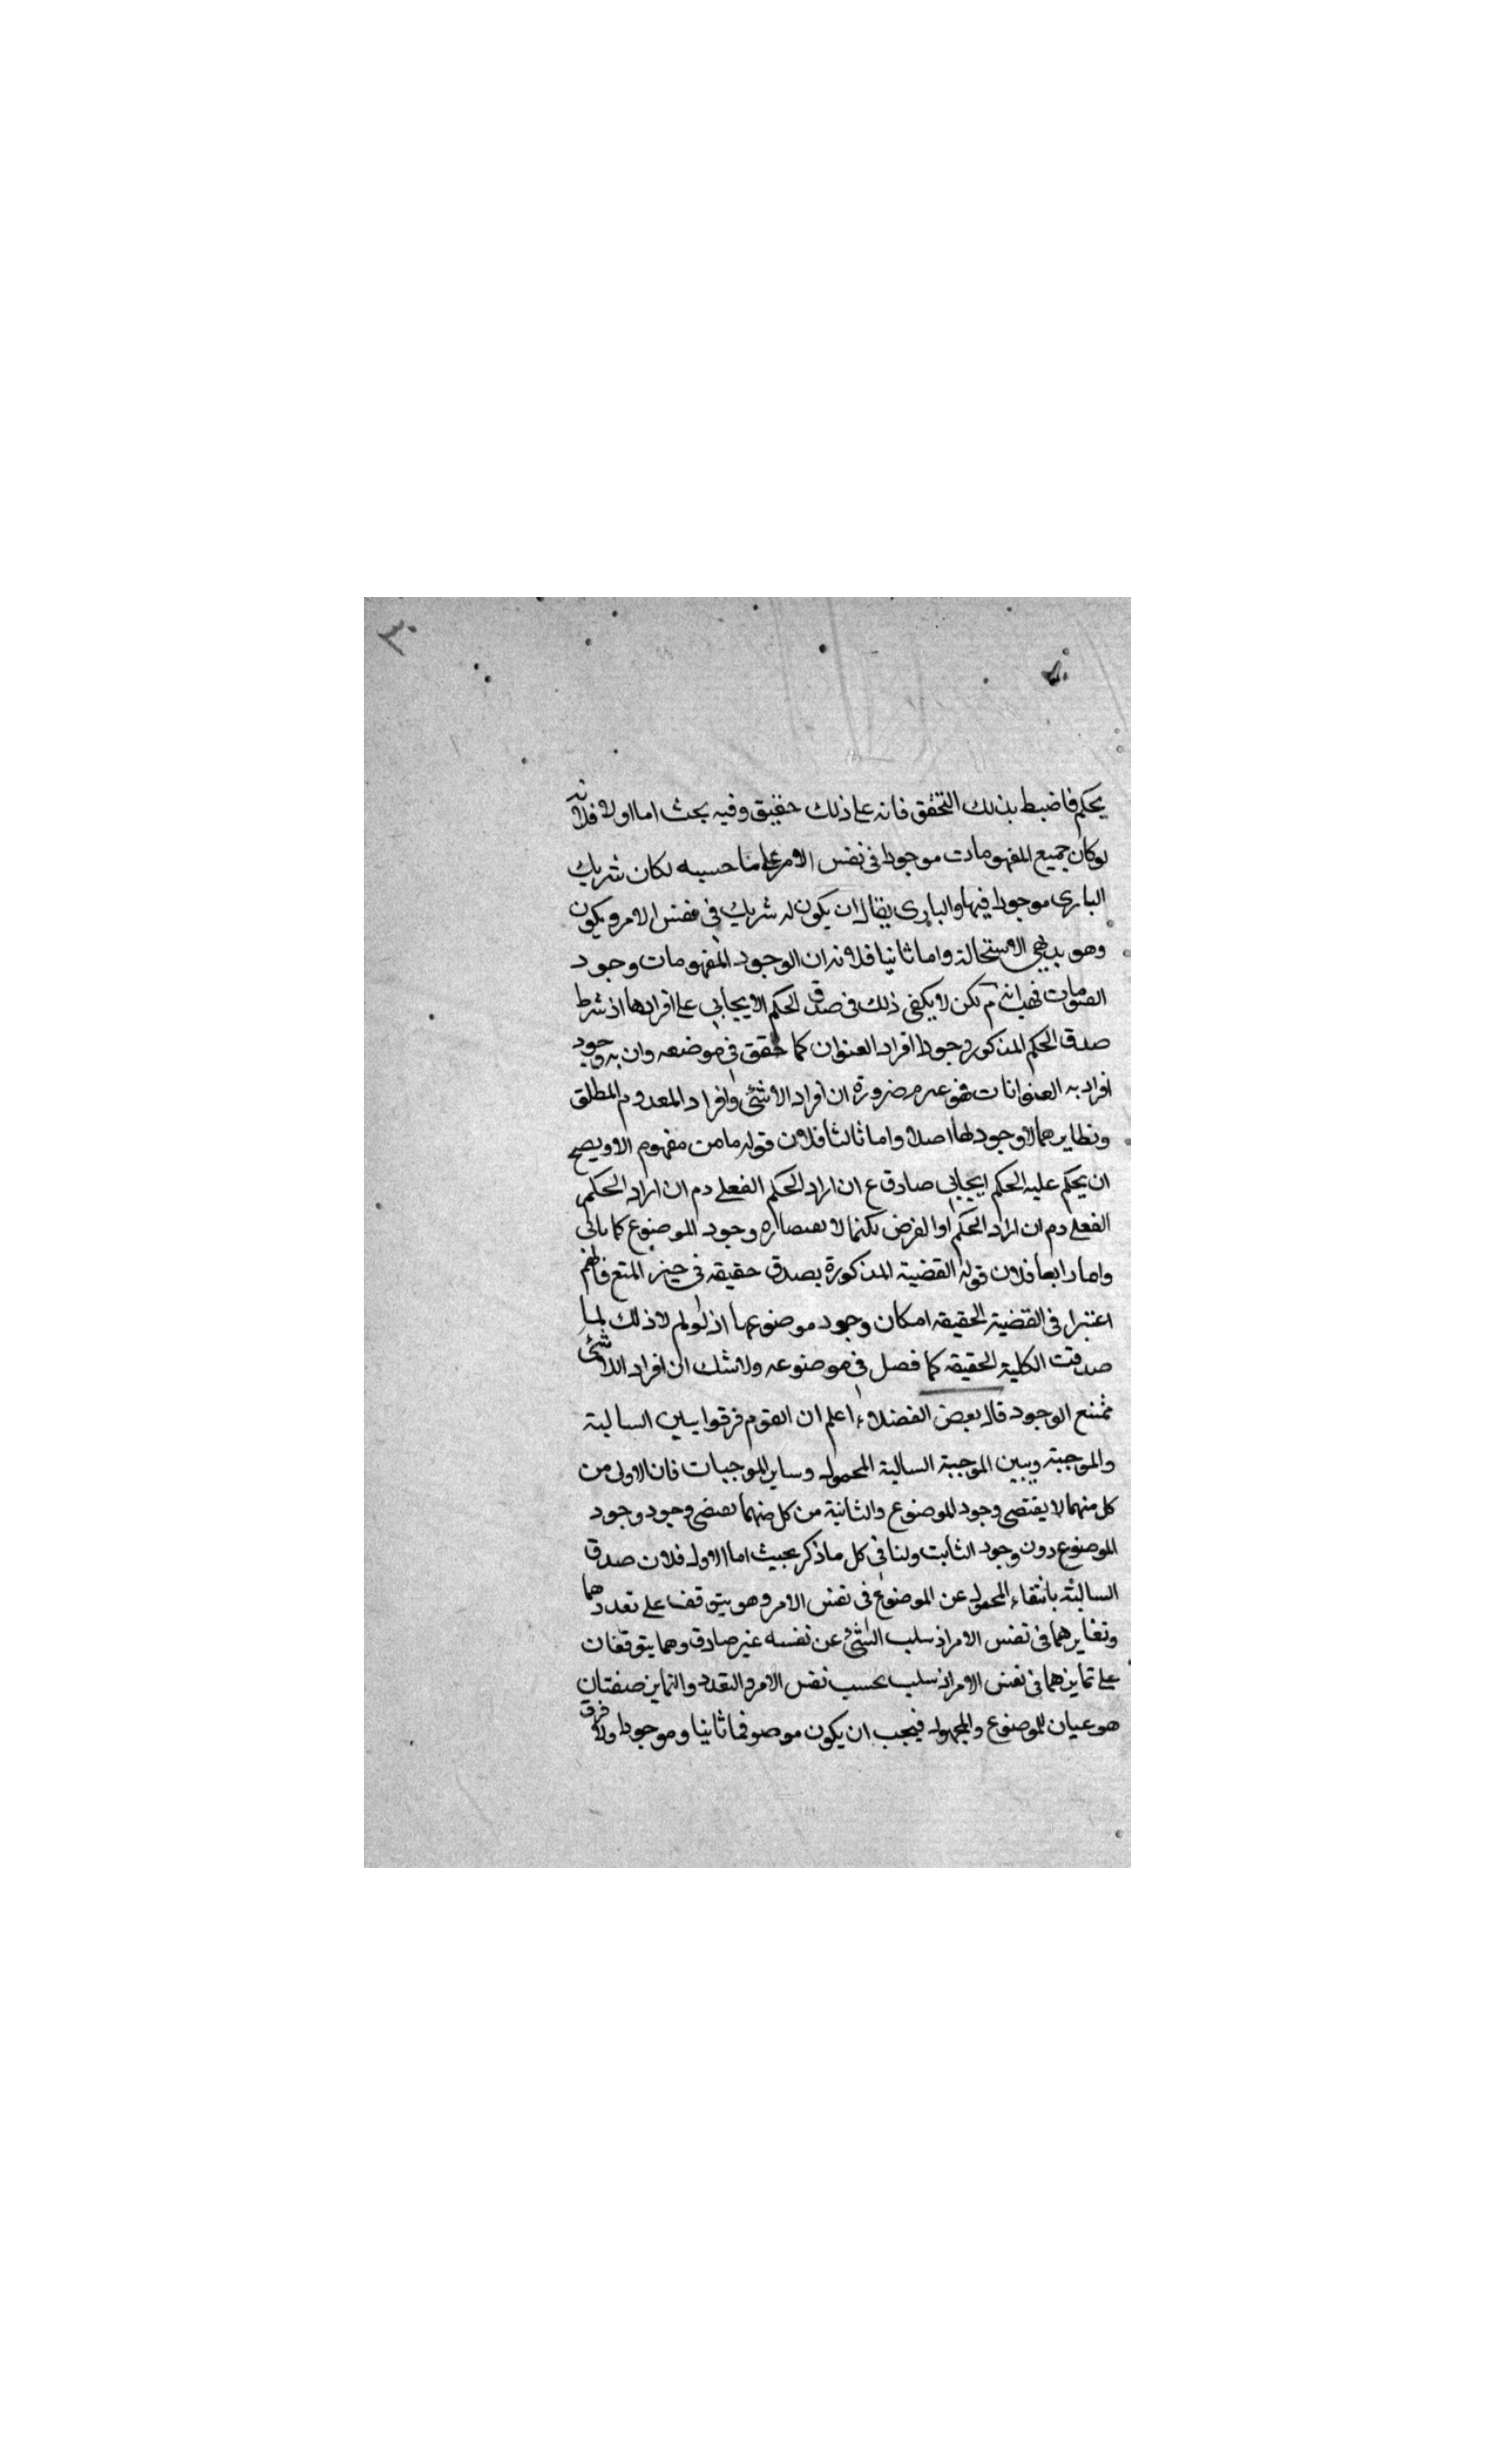 ٣
يحكم فاضبط بذلك التحقق فانه على ذلك حقيق وفيه بحث اما اولا فلانه
لو كان جميع المفهومات موجودا فى نفس الامر على ما حسبه لكان شريك
البارى موجودا فيها والبارى يقال ان يكون له شريك فى نفس الامر ويكون
وهو بديهى الاستحالة واما ثانيا فلانه ان الوجود المفهومات وجود
لكن لا يكفى ذلك فى صدق الحكم الايجابى على افرادها اذ شرط
صدق الحكم المذكور وجود افراد العنوان كما حقق فى موضعه وان به وجود
افراد به العنوانات فهو ضرورة ان افراد الاشئ وافراد المعدوم المطلق
ونظايرهما لا وجود لها اصلا واما ثالثا فلان قوله ما من مفهوم الا ويصح
ان يحكم عليه الحكم ايجابى صادق ع ان اراد الحكم الفعلى دم ان اراد الحكم
الفعلى دم ان اراد الحكم او الفرض لكنما لا وجود الموضوع كما ياتى
واما رابعا فلان قوله القضية المذكورة يصدق حقيقه فى حيز المنع فانهم
اعتبرا فى القضية الحقيقه امكان وجود موضوعها اذ لو لم لا ذلك لما
صدقت الكلية الحقيقه كما فصل فى موضوعه ولا شك ان افراد اللاشئ
ممتنع الوجود قال بعض الفضلاء اعلم ان القوم فرقوا بين السالبة
والموجبة وبين الموجبة السالبة المحمول وساير الموجبات فان الاولى من
كل منهما لا يقتضى وجود الموضوع والثانية من كل منهما يقتضى وجود وجود
الموضوع دون وجود الثابت ولنا فى كل ما ذكر بحيث اما الاول فلان صدق
السالبة بانتقاء المحمول عن الموضوع فى نفس الامر وهو يتوقف على تعددهما
وتغايرهما فى نفس الامر اذ سلب الشئ عن نفسه غير صادق وهما يتوقفان
على تمايزهما فى نفس الامر اذ سلب بحسب نفس الامر والتعدد والتمايز صفتان
هو عيان للموضوع والمحمول فيجب ان يكون موصوفا ثانيا وموجودا ولا فرق